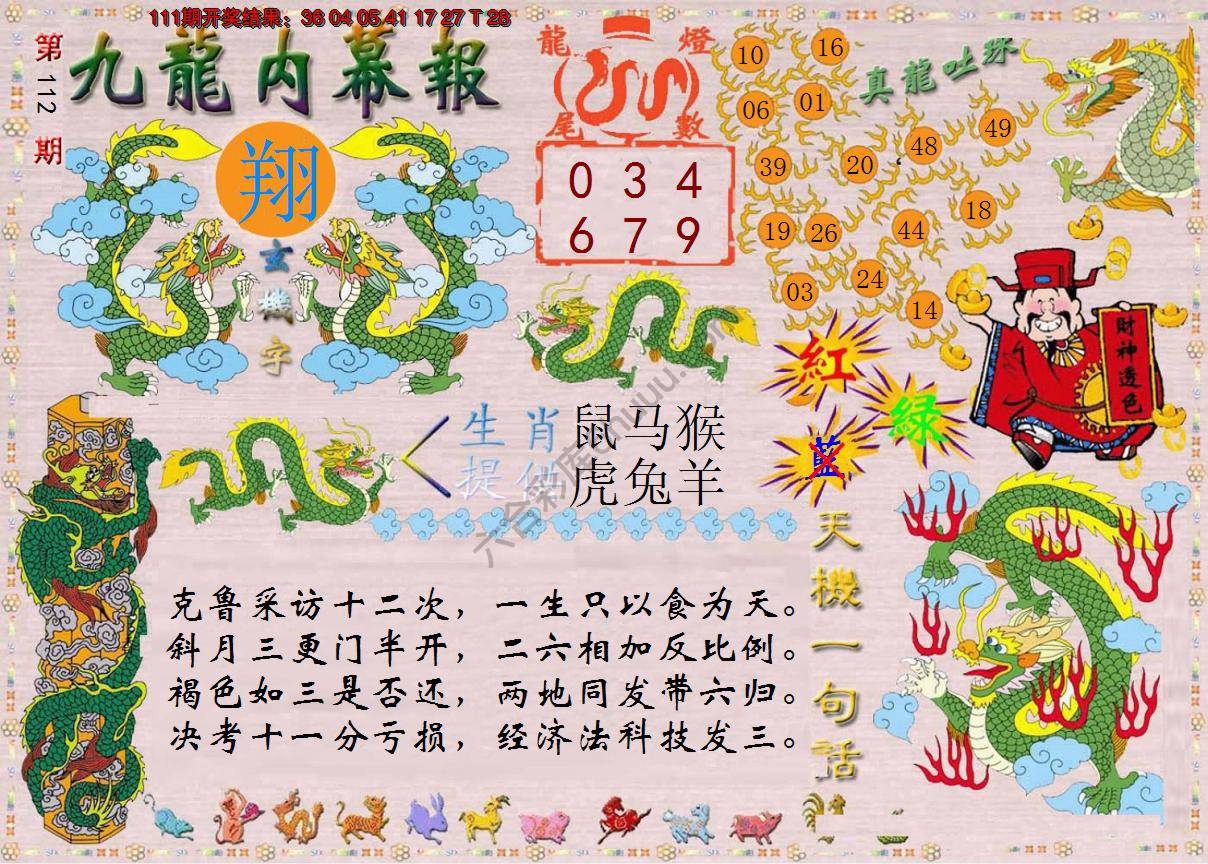 111期开奖结果：36 04 05 41 17 27 T 28
第112期
九龍内幕報
翔
玄機字
龍燈
尾數
0 3 4
6 7 9
真龍吐珠
10 16
06 01
39 20 48 49
19 26 44 18
03 24 14
財神透色
紅
綠
藍
生肖 鼠马猴
提供 虎兔羊
天機一句話
克鲁采访十二次，一生只以食为天。
斜月三更门半开，二六相加反比例。
褐色如三是否还，两地同发带六归。
决考十一分亏损，经济法科技发三。